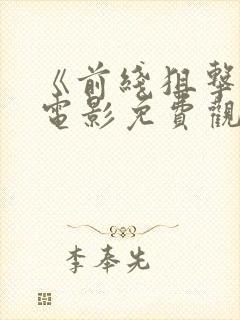 《前线狙擊
電影免費觀
李奉先